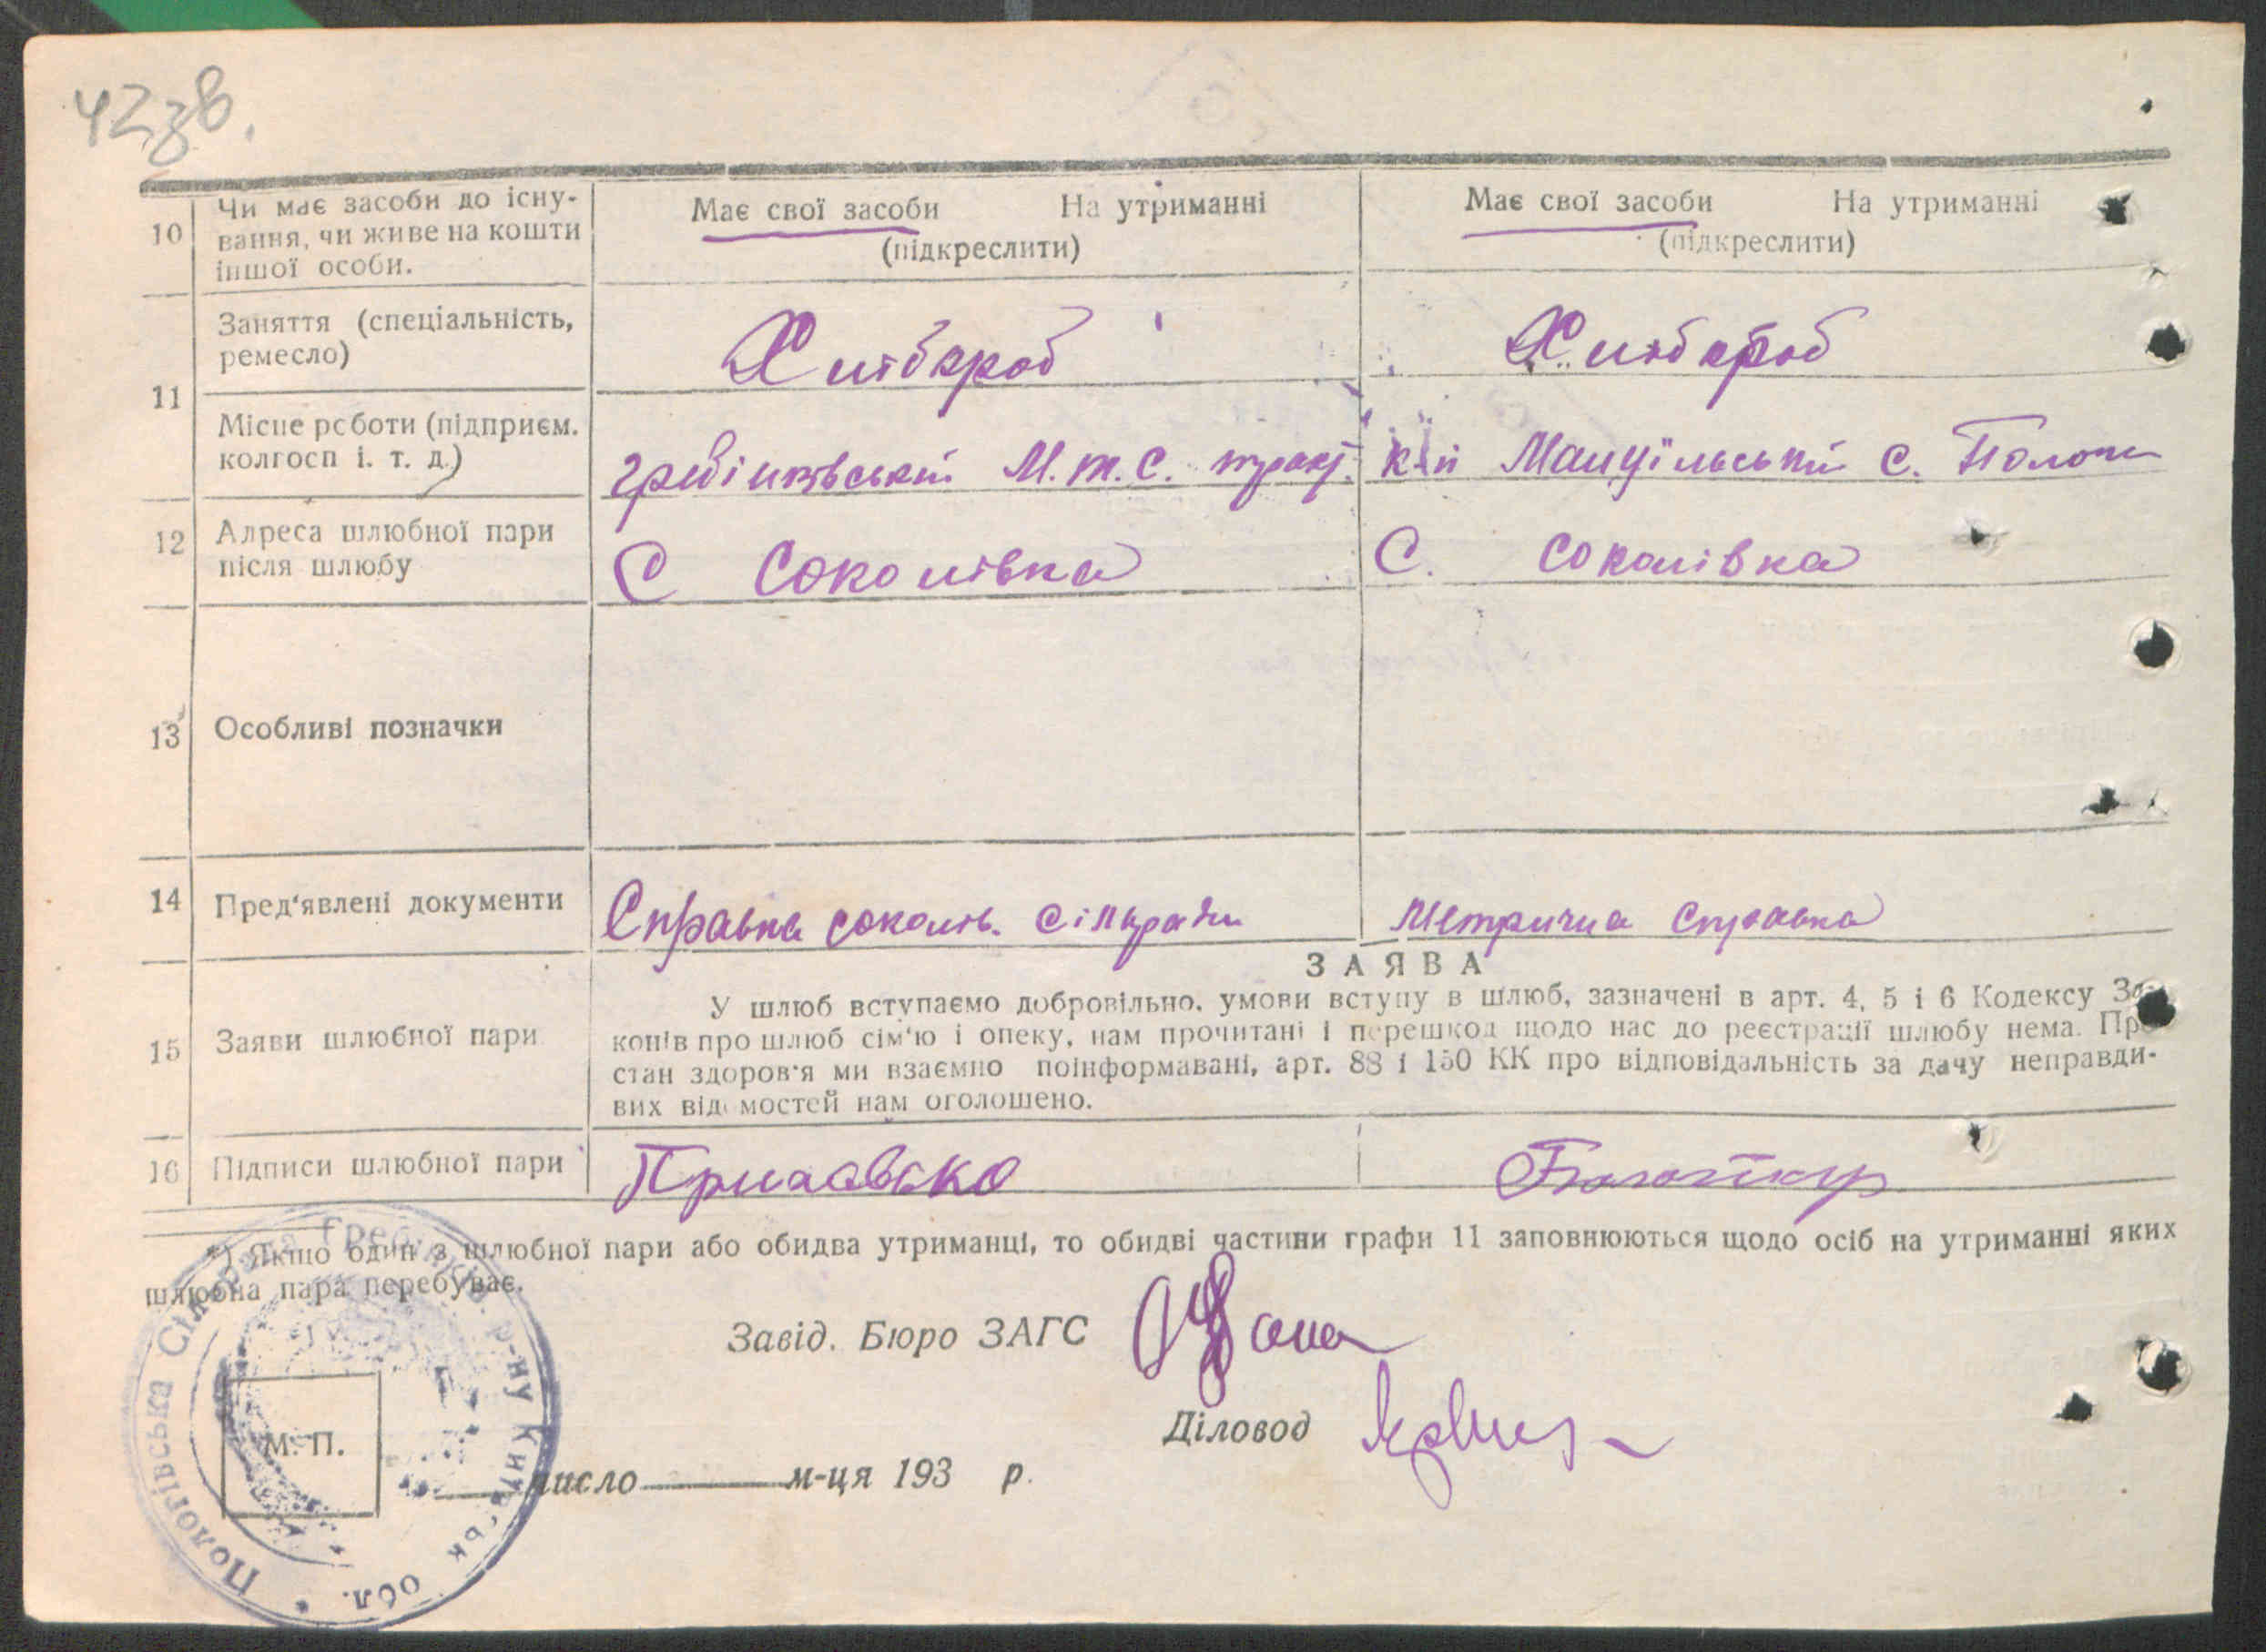 42зв.
10 Чи має засоби до існу-
вання, чи живе на кошти
іншої особи.
Має свої засоби На утриманні
(підкреслити)
Має свої засоби На утриманні
(підкреслити)
11 Заняття (спеціальність,
ремесло)
Хлібороб
Хлібороб
Місце роботи (підприєм.
колгосп і. т. д.)
М.Т.С. тракт.
с. Пологи
12 Адреса шлюбної пари
після шлюбу
С Соколівка
С. Соколівка
13 Особливі позначки
14 Пред'явлені документи
Справка соколів. сільради
Метрична справка
15 Заяви шлюбної пари
ЗАЯВА
У шлюб вступаємо добровільно, умови вступу в шлюб, зазначені в арт. 4, 5 і 6 Кодексу За-
конів про шлюб сім'ю і опеку, нам прочитані і перешкод щодо нас до реєстрації шлюбу нема. Про
стан здоров'я ми взаємно поінформавані, арт. 88 і 150 КК про відповідальність за дачу неправди-
вих відомостей нам оголошено.
16 Підписи шлюбної пари
*) Якщо один з шлюбної пари або обидва утриманці, то обидві частини графи 11 заповнюються щодо осіб на утриманні яких
шлюбна пара перебуває.
Завід. Бюро ЗАГС
Діловод
М. П.
число м-ця 193 р.
Пологівська Сільрада Греб. р-ну Київськ обл.